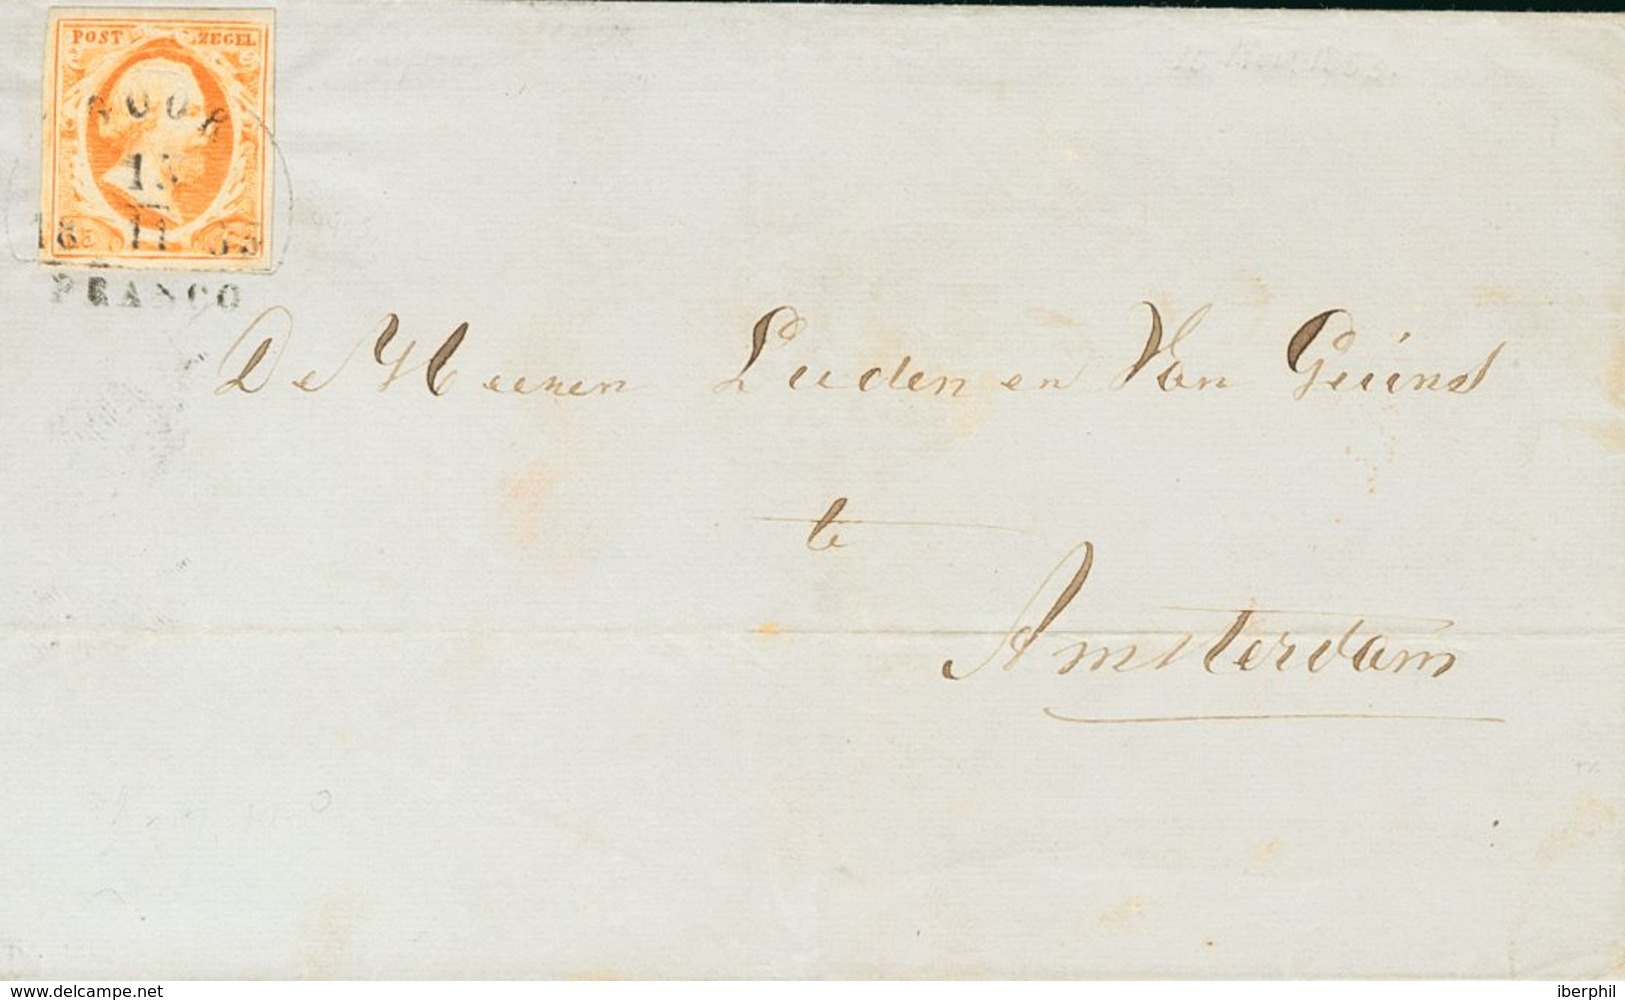 POST ZEGEL
GOOR
15
18 11 55
FRANCO
De Heeren Luden en Van Geuns
te
Amsterdam
www.delcampe.net
iberphil